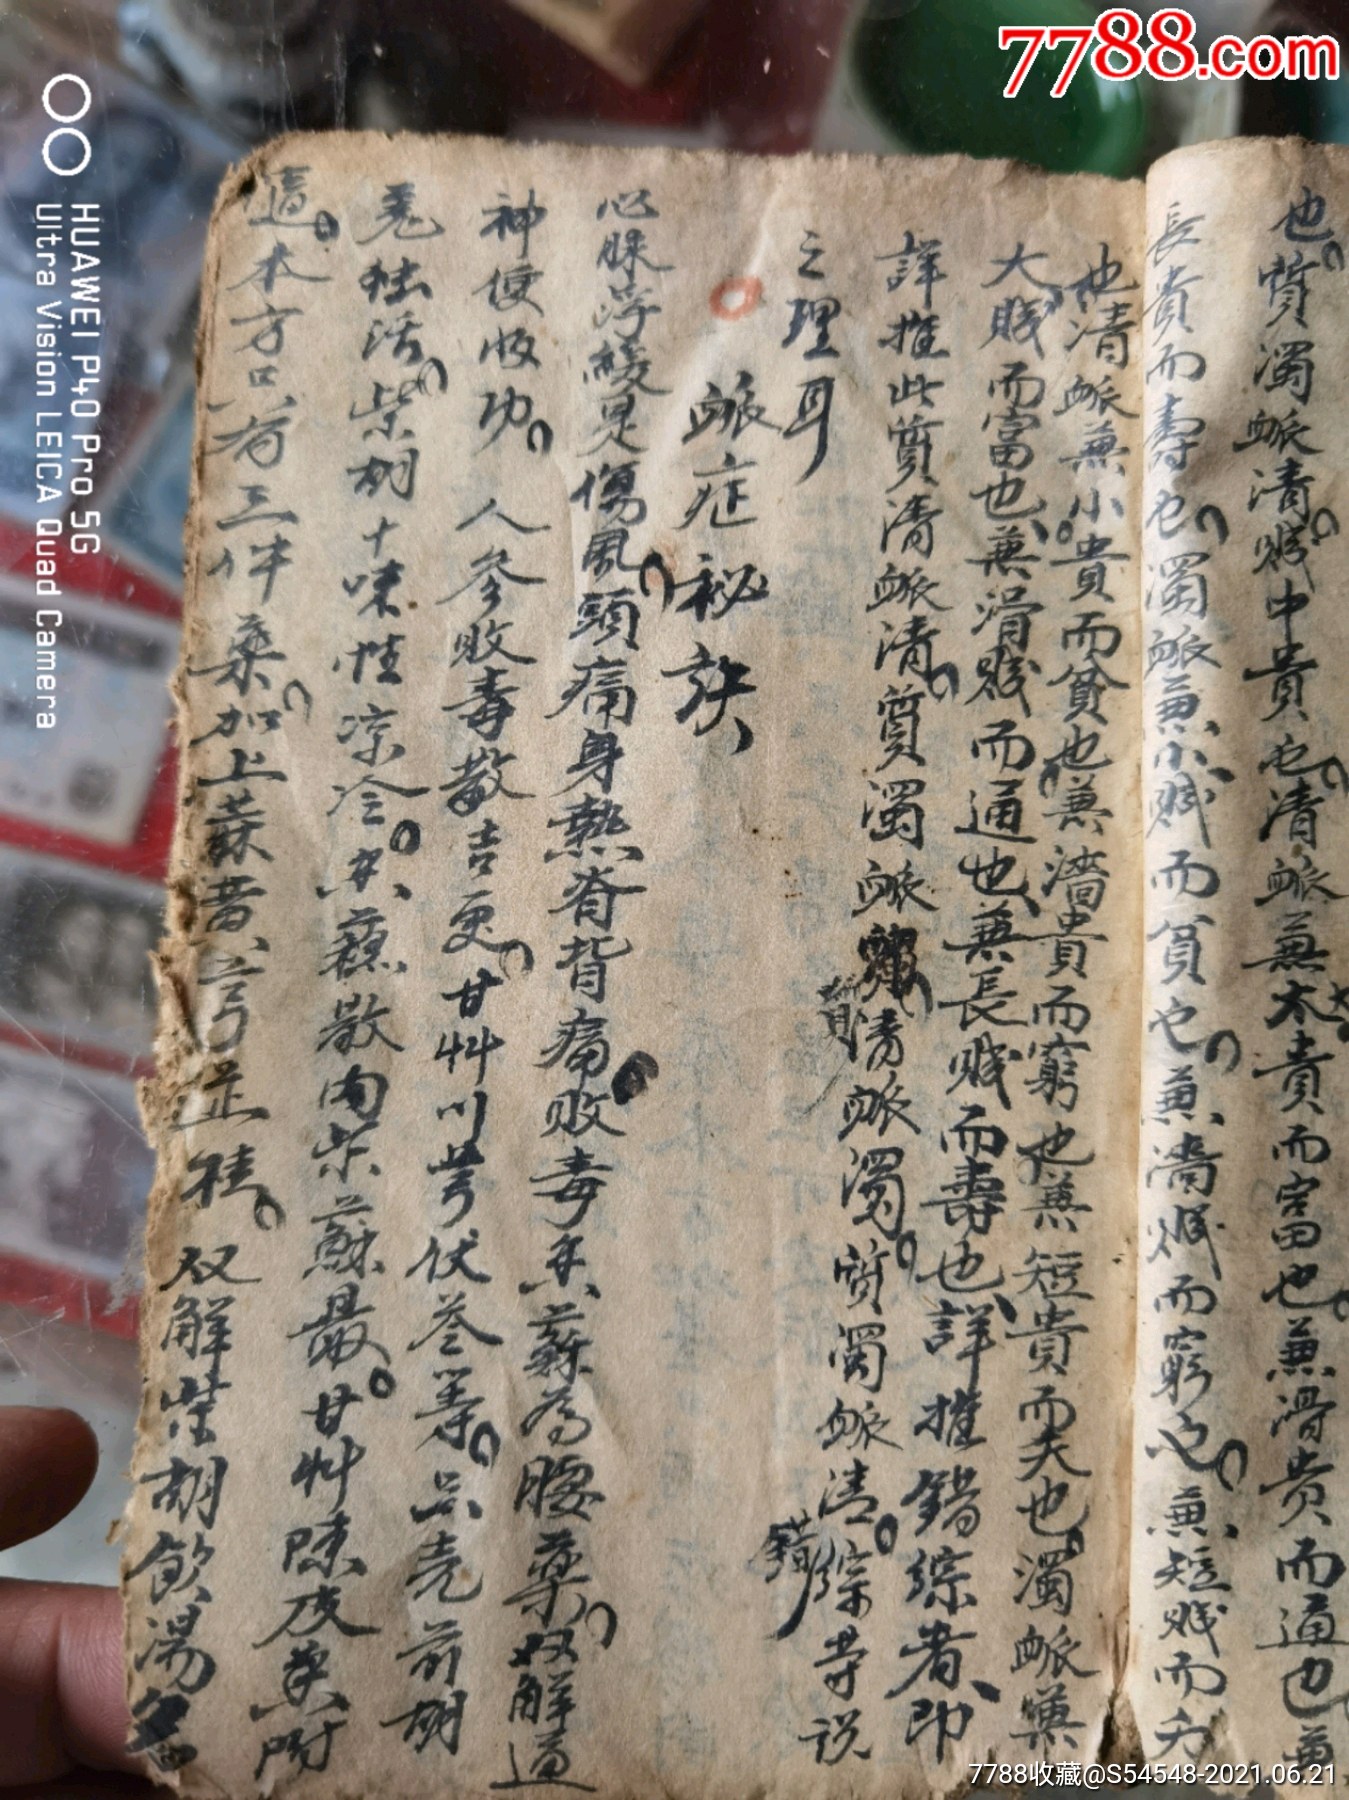 7788.com
HUAWEI P40 Pro 5G
Ultra Vision LEICA Quad Camera
也質濁脈清賤中貴也清脈兼大貴而富也兼滑貴而通也兼
長貴而壽也濁脈兼小賤而貧也兼濇賤而窮也兼短賤而夭
也清脈兼小貴而貧也兼濇貴而窮也兼短貴而夭也濁脈兼
大賤而富也兼滑賤而通也兼長賤而壽也詳推錯綜者即
詳推此質清脈清質濁脈濁質清脈濁質濁脈清錯綜等説
之理耳
脈症秘訣
心脉浮緩是傷風頭痛身熱脊背痛敗毒香蘇為腰藥双解通
神便收功人參敗毒散吉更甘艸川芎伏苓等只壳前胡
羌独活柴胡十味性凉冷香蘇散内紫蘇最甘艸陳皮香附
這本方只有三件藥加上蔴黄芎並桂双解柴胡飲湯名
7788收藏@S54548-2021.06.21